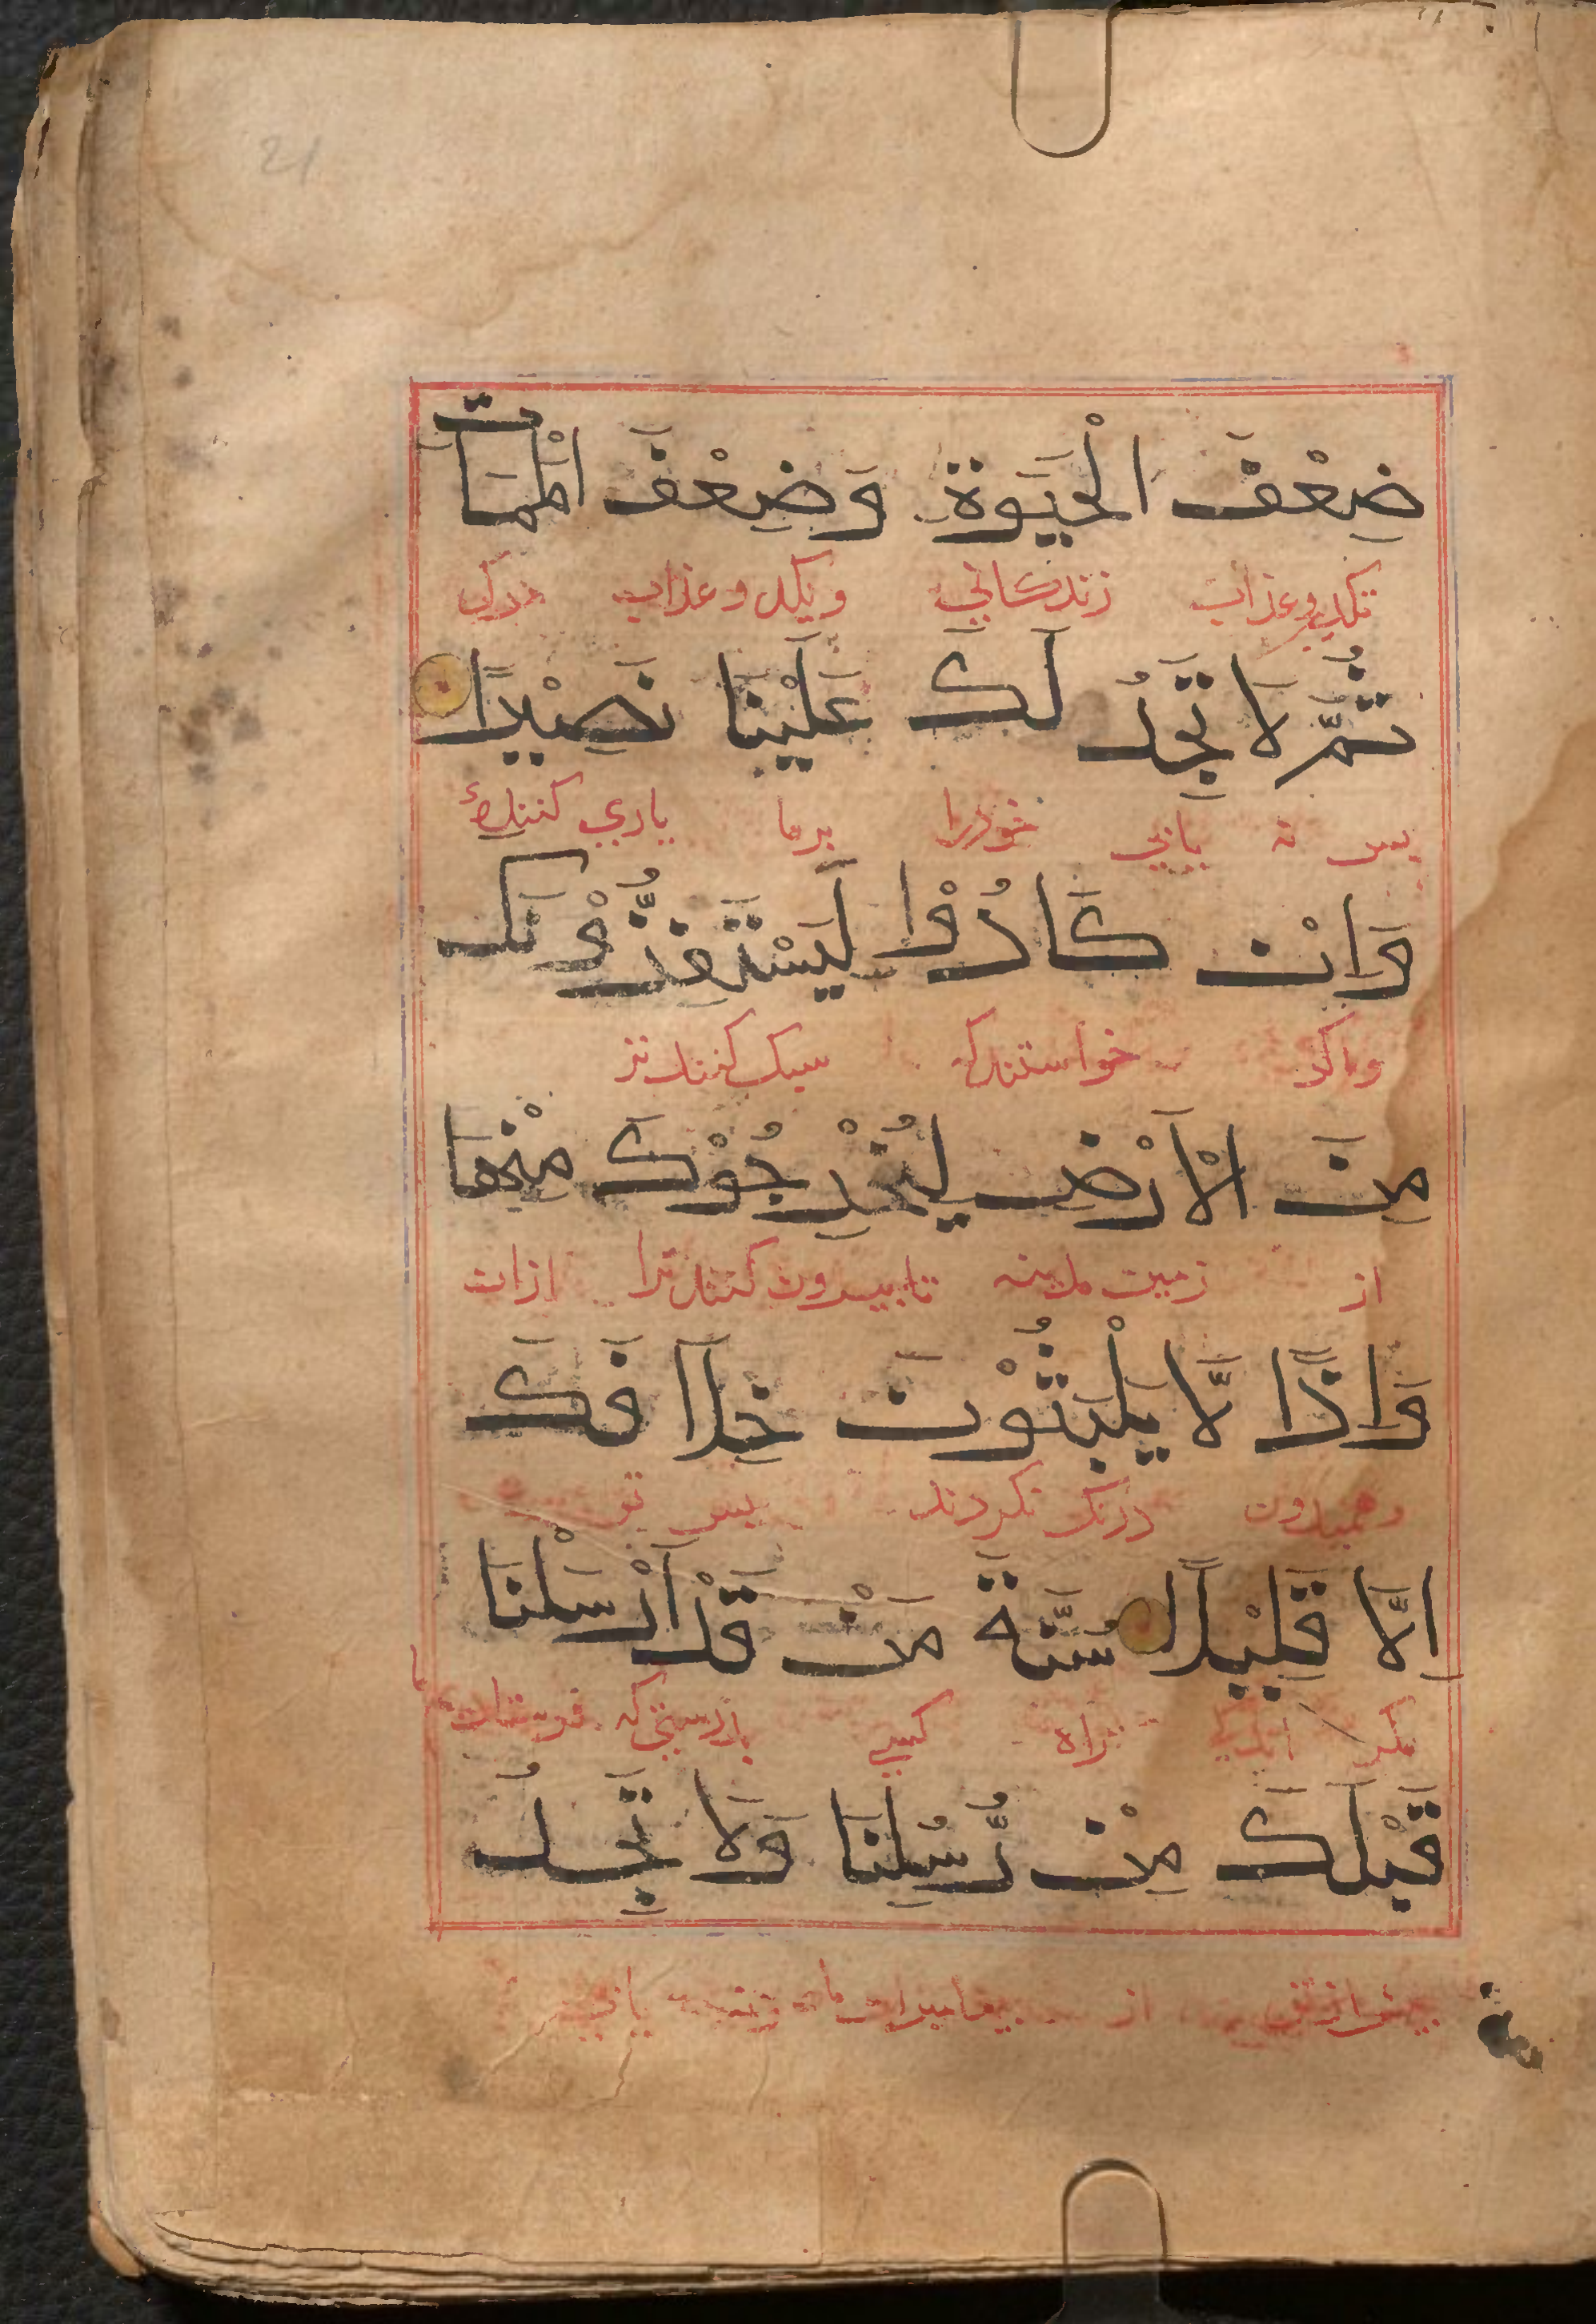 21
ضِعْفَ الْحَيَوةِ وَضِعْفَ الْمَمَاتِ
وعذاب زندكاني و عذاب
ثُمَّ لَا تَجِدُ لَكَ عَلَيْنَا نَصِيْرًا
پس نه يابي خودرا برما ياري كننده
وَاِنْ كَادُوْا لَيَسْتَفِزُّوْنَكَ
خواستندكه سبك كنند
مِنَ الْاَرْضِ لِيُخْرِجُوْكَ مِنْهَا
از زمين مدينه تا بيرون كنند ترا ازان
وَاِذًا لَّا يَلْبَثُوْنَ خِلَافَكَ
درنك نكردند پس تو
اِلَّا قَلِيْلًا سُنَّةَ مَنْ قَدْ اَرْسَلْنَا
مكر اندكي راه كسي
قَبْلَكَ مِنْ رُّسُلِنَا وَلَا تَجِدُ
پيش ازتو از پيغامبران ما يابي